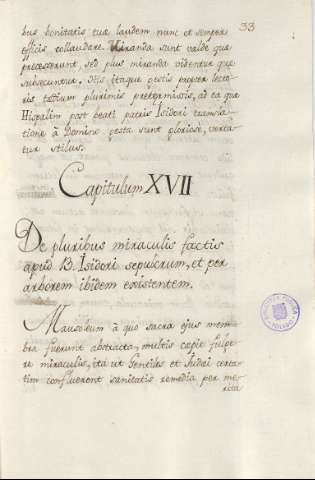 33
bus bonitatis tuæ laudem nunc et semper
efficis collaudare. Miranda sunt valde quæ
præcesserunt, sed plus miranda videntur quæ
subsecuntur. Istis itaque gestis propter lecto-
ris tædium plurimis prætermissis, ad ea quæ
Hispalim post beati patris Isidori transla-
tione à Domino gesta sunt gloriosè, verta-
tur stilus.
Capitulum XVII
De pluribus miraculis factis
apud B. Isidori sepulcrum, et per
arborem ibidem existentem.
Mausoleum à quo sacra ejus mem-
bra fuerunt abstracta, multis cæpit fulge-
re miraculis, ita ut Gentiles et Judæi certa-
tim confluerent sanitatis remedia per me-
rita